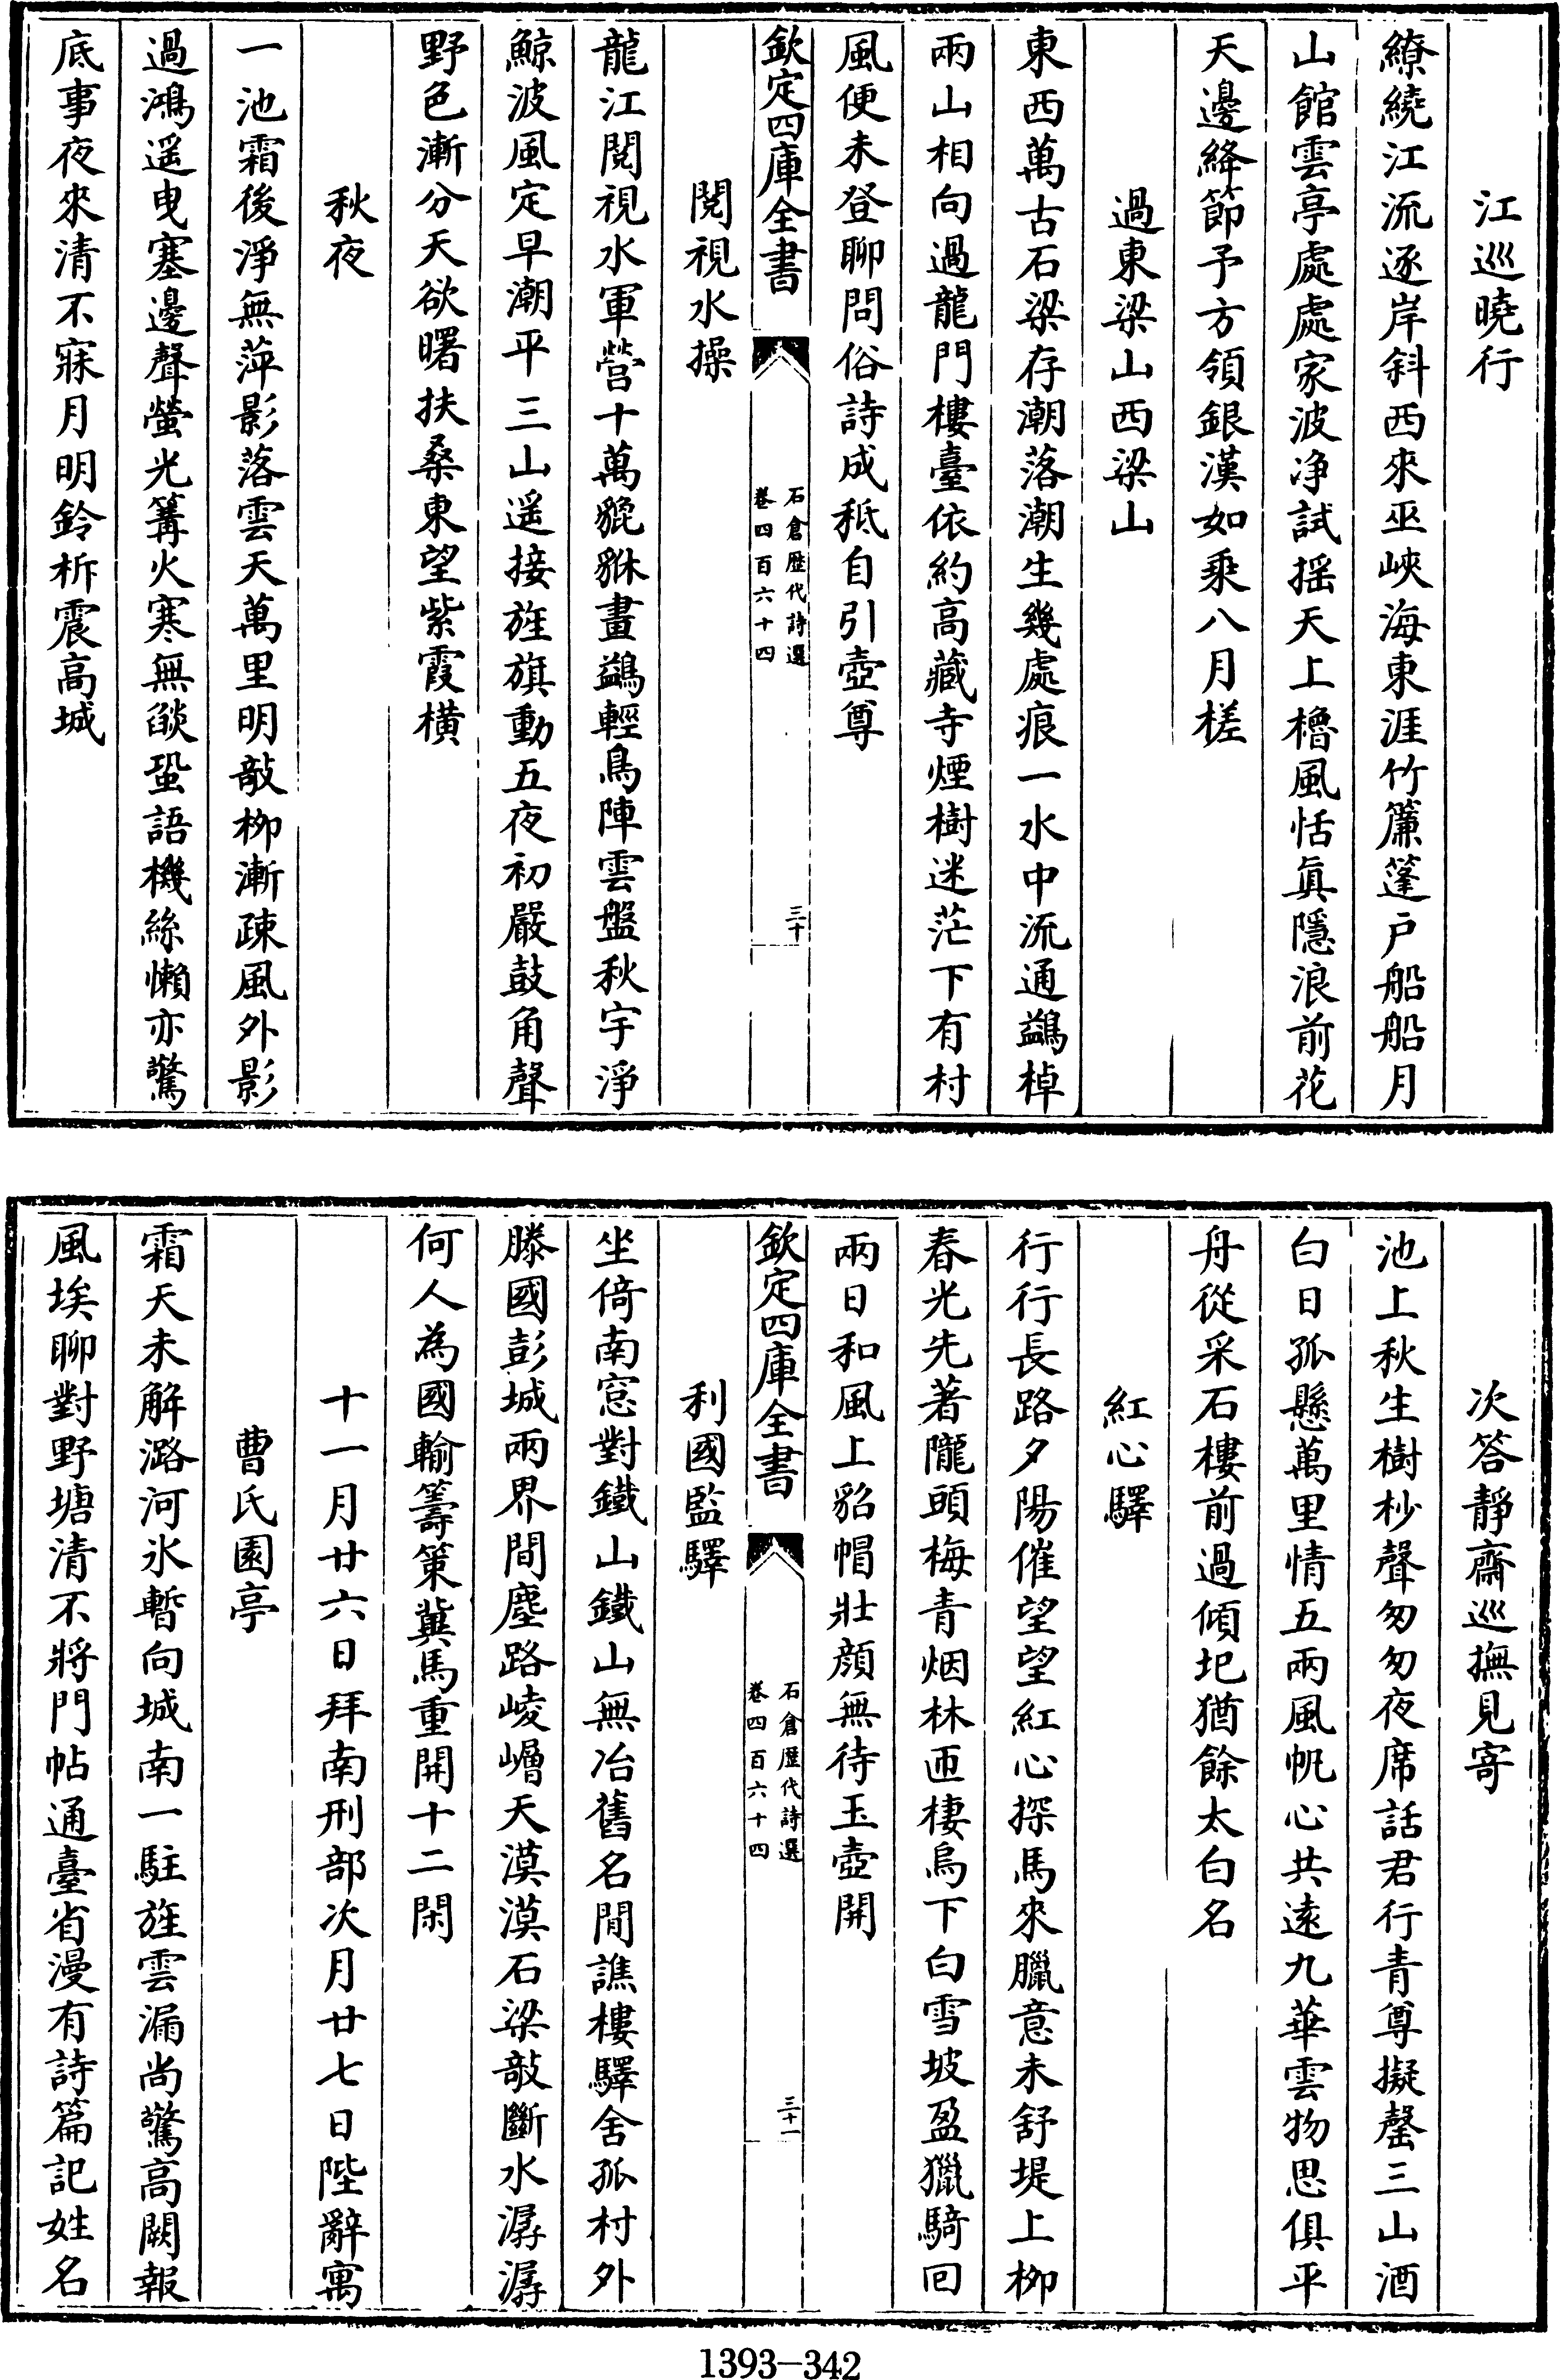 江巡曉行
繚繞江流逐岸斜西來巫峽海東涯竹簾蓬戶船船月
山館雲亭處處家波净試摇天上櫓風恬眞隱浪前花
天邊絳節予方領銀漢如乘八月槎
過東梁山西梁山
東西萬古石梁存潮落潮生幾處痕一水中流通鷁棹
兩山相向過龍門樓臺依約高藏寺煙樹迷茫下有村
風便未登聊問俗詩成秪自引壺尊
欽定四庫全書
石倉歷代詩選
卷四百六十四
三十
閱視水操
龍江閱視水軍營十萬貔貅畫鷁輕鳥陣雲盤秋宇淨
鯨波風定早潮平三山遥接旌旗動五夜初嚴鼓角聲
野色漸分天欲曙扶桑東望紫霞橫
秋夜
一池霜後淨無萍影落雲天萬里明敲柳漸疎風外影
過鴻遥曳塞邊聲螢光篝火寒無燄蛩語機絲懶亦驚
底事夜來清不寐月明鈴柝震高城
次答靜齋巡撫見寄
池上秋生樹杪聲匆匆夜席話君行青尊擬罄三山酒
白日孤懸萬里情五兩風帆心共遠九華雲物思俱平
舟從采石樓前過傾圯猶餘太白名
紅心驛
行行長路夕陽催望望紅心探馬來臘意未舒堤上柳
春光先著隴頭梅青烟林匝棲烏下白雪坡盈獵騎回
兩日和風上貂帽壯顔無待玉壺開
欽定四庫全書
石倉歷代詩選
卷四百六十四
三十一
利國監驛
坐倚南窓對鐵山鐵山無冶舊名閒譙樓驛舍孤村外
滕國彭城兩界間塵路崚嶒天漠漠石梁敲斷水潺潺
何人為國輸籌策冀馬重開十二閑
十一月廿六日拜南刑部次月廿七日陛辭寓
曹氏園亭
霜天未解潞河氷暫向城南一駐旌雲漏尚驚高闕報
風埃聊對野塘清不將門帖通臺省漫有詩篇記姓名
1393-342